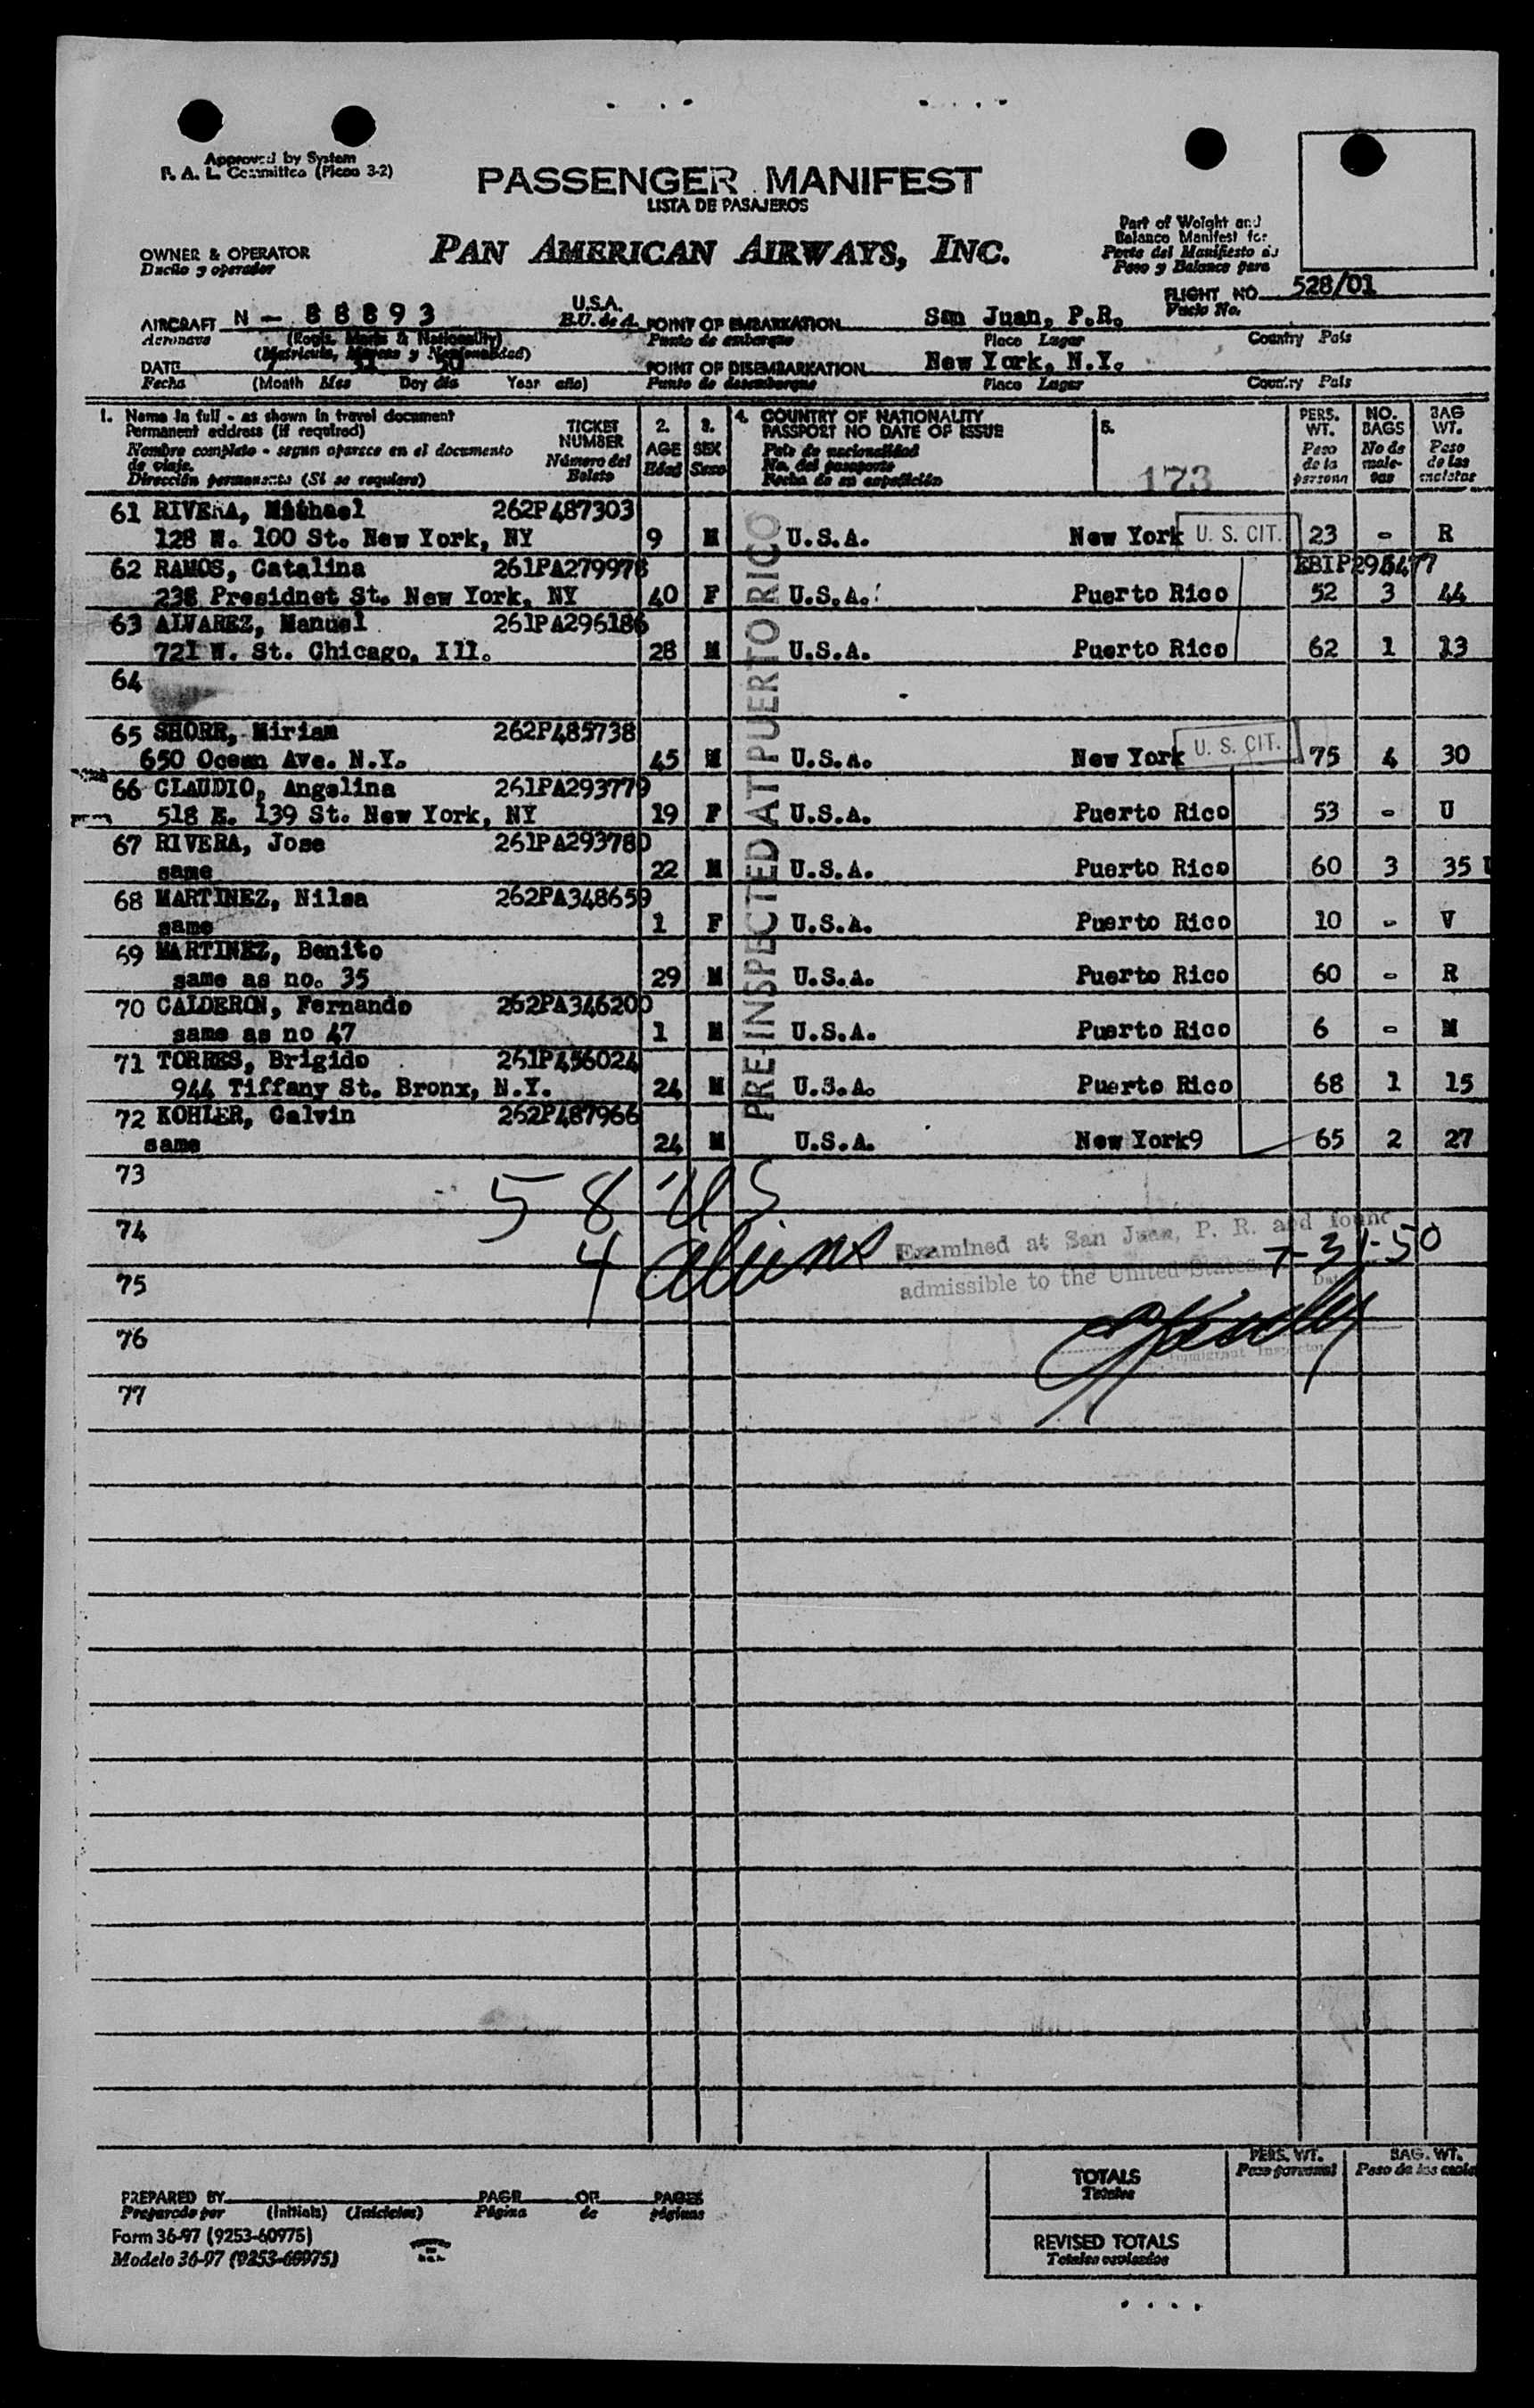 Approved by System
P. A. L. Committee (Picao 3-2)
PASSENGER MANIFEST
LISTA DE PASAJEROS
Part of Weight and
Balance Manifest for
Parte del Manifiesto de
Peso y Balance para
OWNER & OPERATOR
Dueño y operador
PAN AMERICAN AIRWAYS, INC.
FLIGHT NO. 528/01
Vuelo No.
AIRCRAFT N - 88893 U.S.A. POINT OF EMBARKATION San Juan, P.R.
Aeronave (Regis. Marks & Nationality) E.U. de A. Punto de embarque Place Lugar Country País
(Matrícula, Marcas y Nacionalidad)
DATE 7 31 50 POINT OF DISEMBARKATION New York, N.Y.
Fecha (Month Mes Day día Year año) Punto de desembarque Place Lugar Country País
1. Name in full - as shown in travel document
Permanent address (if required)
Nombre completo - segun aparece en el documento
de viaje.
Dirección permanente (Si se requiere)
TICKET
NUMBER
Número del
Boleto
2.
AGE
Edad
3.
SEX
Sexo
4. COUNTRY OF NATIONALITY
PASSPORT NO DATE OF ISSUE
País de nacionalidad
No. del pasaporte
Fecha de su expedición
5.
173
PERS.
WT.
Peso
de la
persona
NO.
BAGS
No de
male-
tas
BAG
WT.
Peso
de las
maletas
PRE-INSPECTED AT PUERTO RICO
61 RIVERA, Michael 262P487303
128 W. 100 St. New York, NY 9 M U.S.A. New York U. S. CIT. 23 - R
62 RAMOS, Catalina 261PA279978
238 Presidnet St. New York, NY 40 F U.S.A. Puerto Rico 52 3 44
63 ALVAREZ, Manuel 261PA296186
721 W. St. Chicago, Ill. 28 M U.S.A. Puerto Rico 62 1 13
64
65 SHORR, Miriam 262P485738
650 Ocean Ave. N.Y. 45 M U.S.A. New York U. S. CIT. 75 4 30
66 CLAUDIO, Angelina 261PA293779
518 E. 139 St. New York, NY 19 F U.S.A. Puerto Rico 53 - U
67 RIVERA, Jose 261PA293780
same 22 M U.S.A. Puerto Rico 60 3 35
68 MARTINEZ, Nilsa 262PA348659
same 1 F U.S.A. Puerto Rico 10 - V
69 MARTINEZ, Benito
same as no. 35 29 M U.S.A. Puerto Rico 60 - R
70 CALDERON, Fernando 262PA346200
same as no 47 1 M U.S.A. Puerto Rico 6 - M
71 TORRES, Brigido 261P456024
944 Tiffany St. Bronx, N.Y. 24 M U.S.A. Puerto Rico 68 1 15
72 KOHLER, Calvin 262P487966
same 24 M U.S.A. New York9 65 2 27
73
58 US
74
4 aliens
Examined at San Juan, P. R. and found
admissible to the United States. 7-31-50
Date
75
76
Immigrant Inspector
77
PERS. WT.
Peso personal
BAG. WT.
TOTALS
Totales
PREPARED BY PAGE OF PAGES
Preparado por (Initials) (Iniciales) Página de páginas
Form 36-97 (9253-60975)
Modelo 36-97 (9253-60975)
REVISED TOTALS
Totales revisados